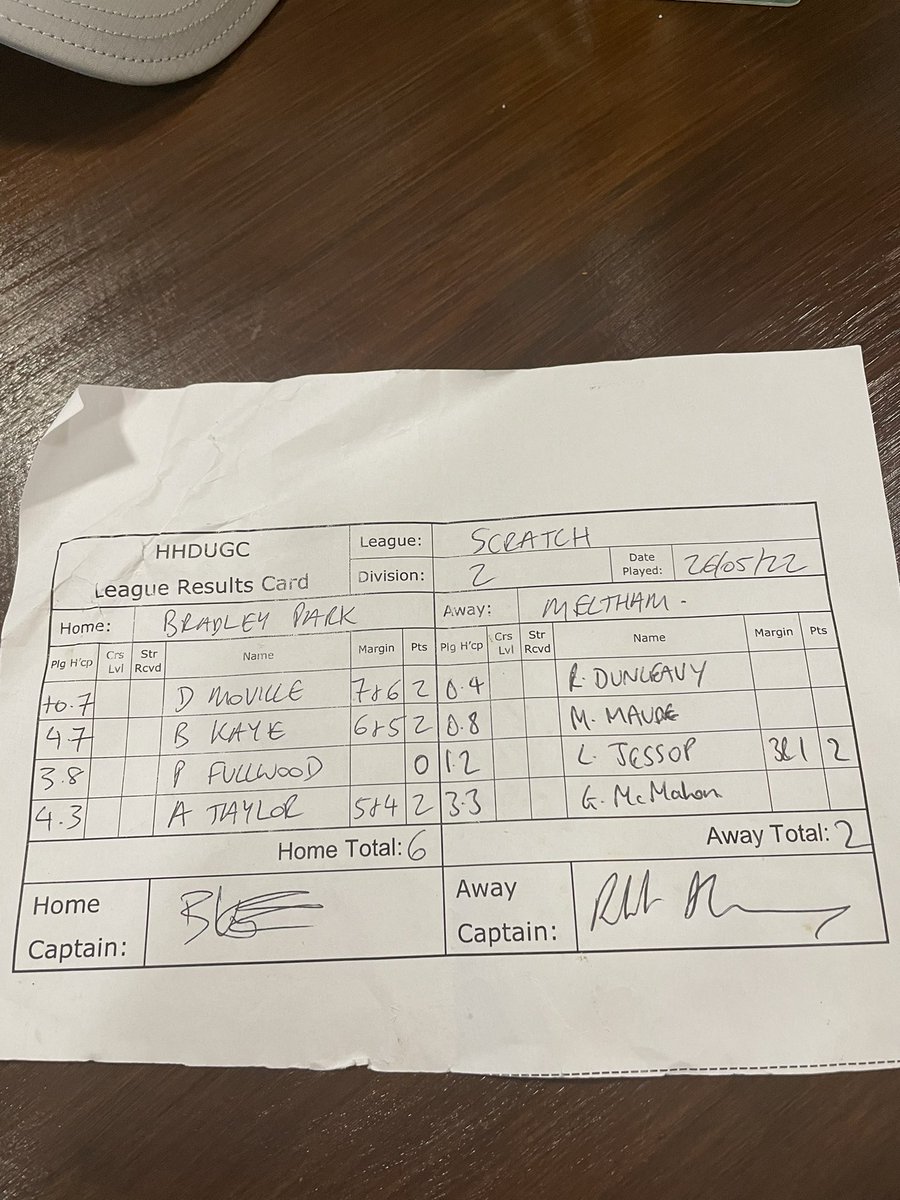 HHDUGC
League Results Card
League: SCRATCH
Division: 2
Date Played: 26/05/22
Home: BRADLEY PARK
Away: MELTHAM -
Plg H'cp Crs Lvl Str Rcvd Name Margin Pts Plg H'cp Crs Lvl Str Rcvd Name Margin Pts
+0.7 D MOVILLE 7&6 2 0.4 R. DUNLEAVY
4.7 B KAYE 6&5 2 0.8 M. MAUDE
3.8 P FULLWOOD 0 1.2 L. JESSOP 3&1 2
4.3 A TAYLOR 5&4 2 3.3 G. McMahon
Home Total: 6 Away Total: 2
Home Captain:
Away Captain: